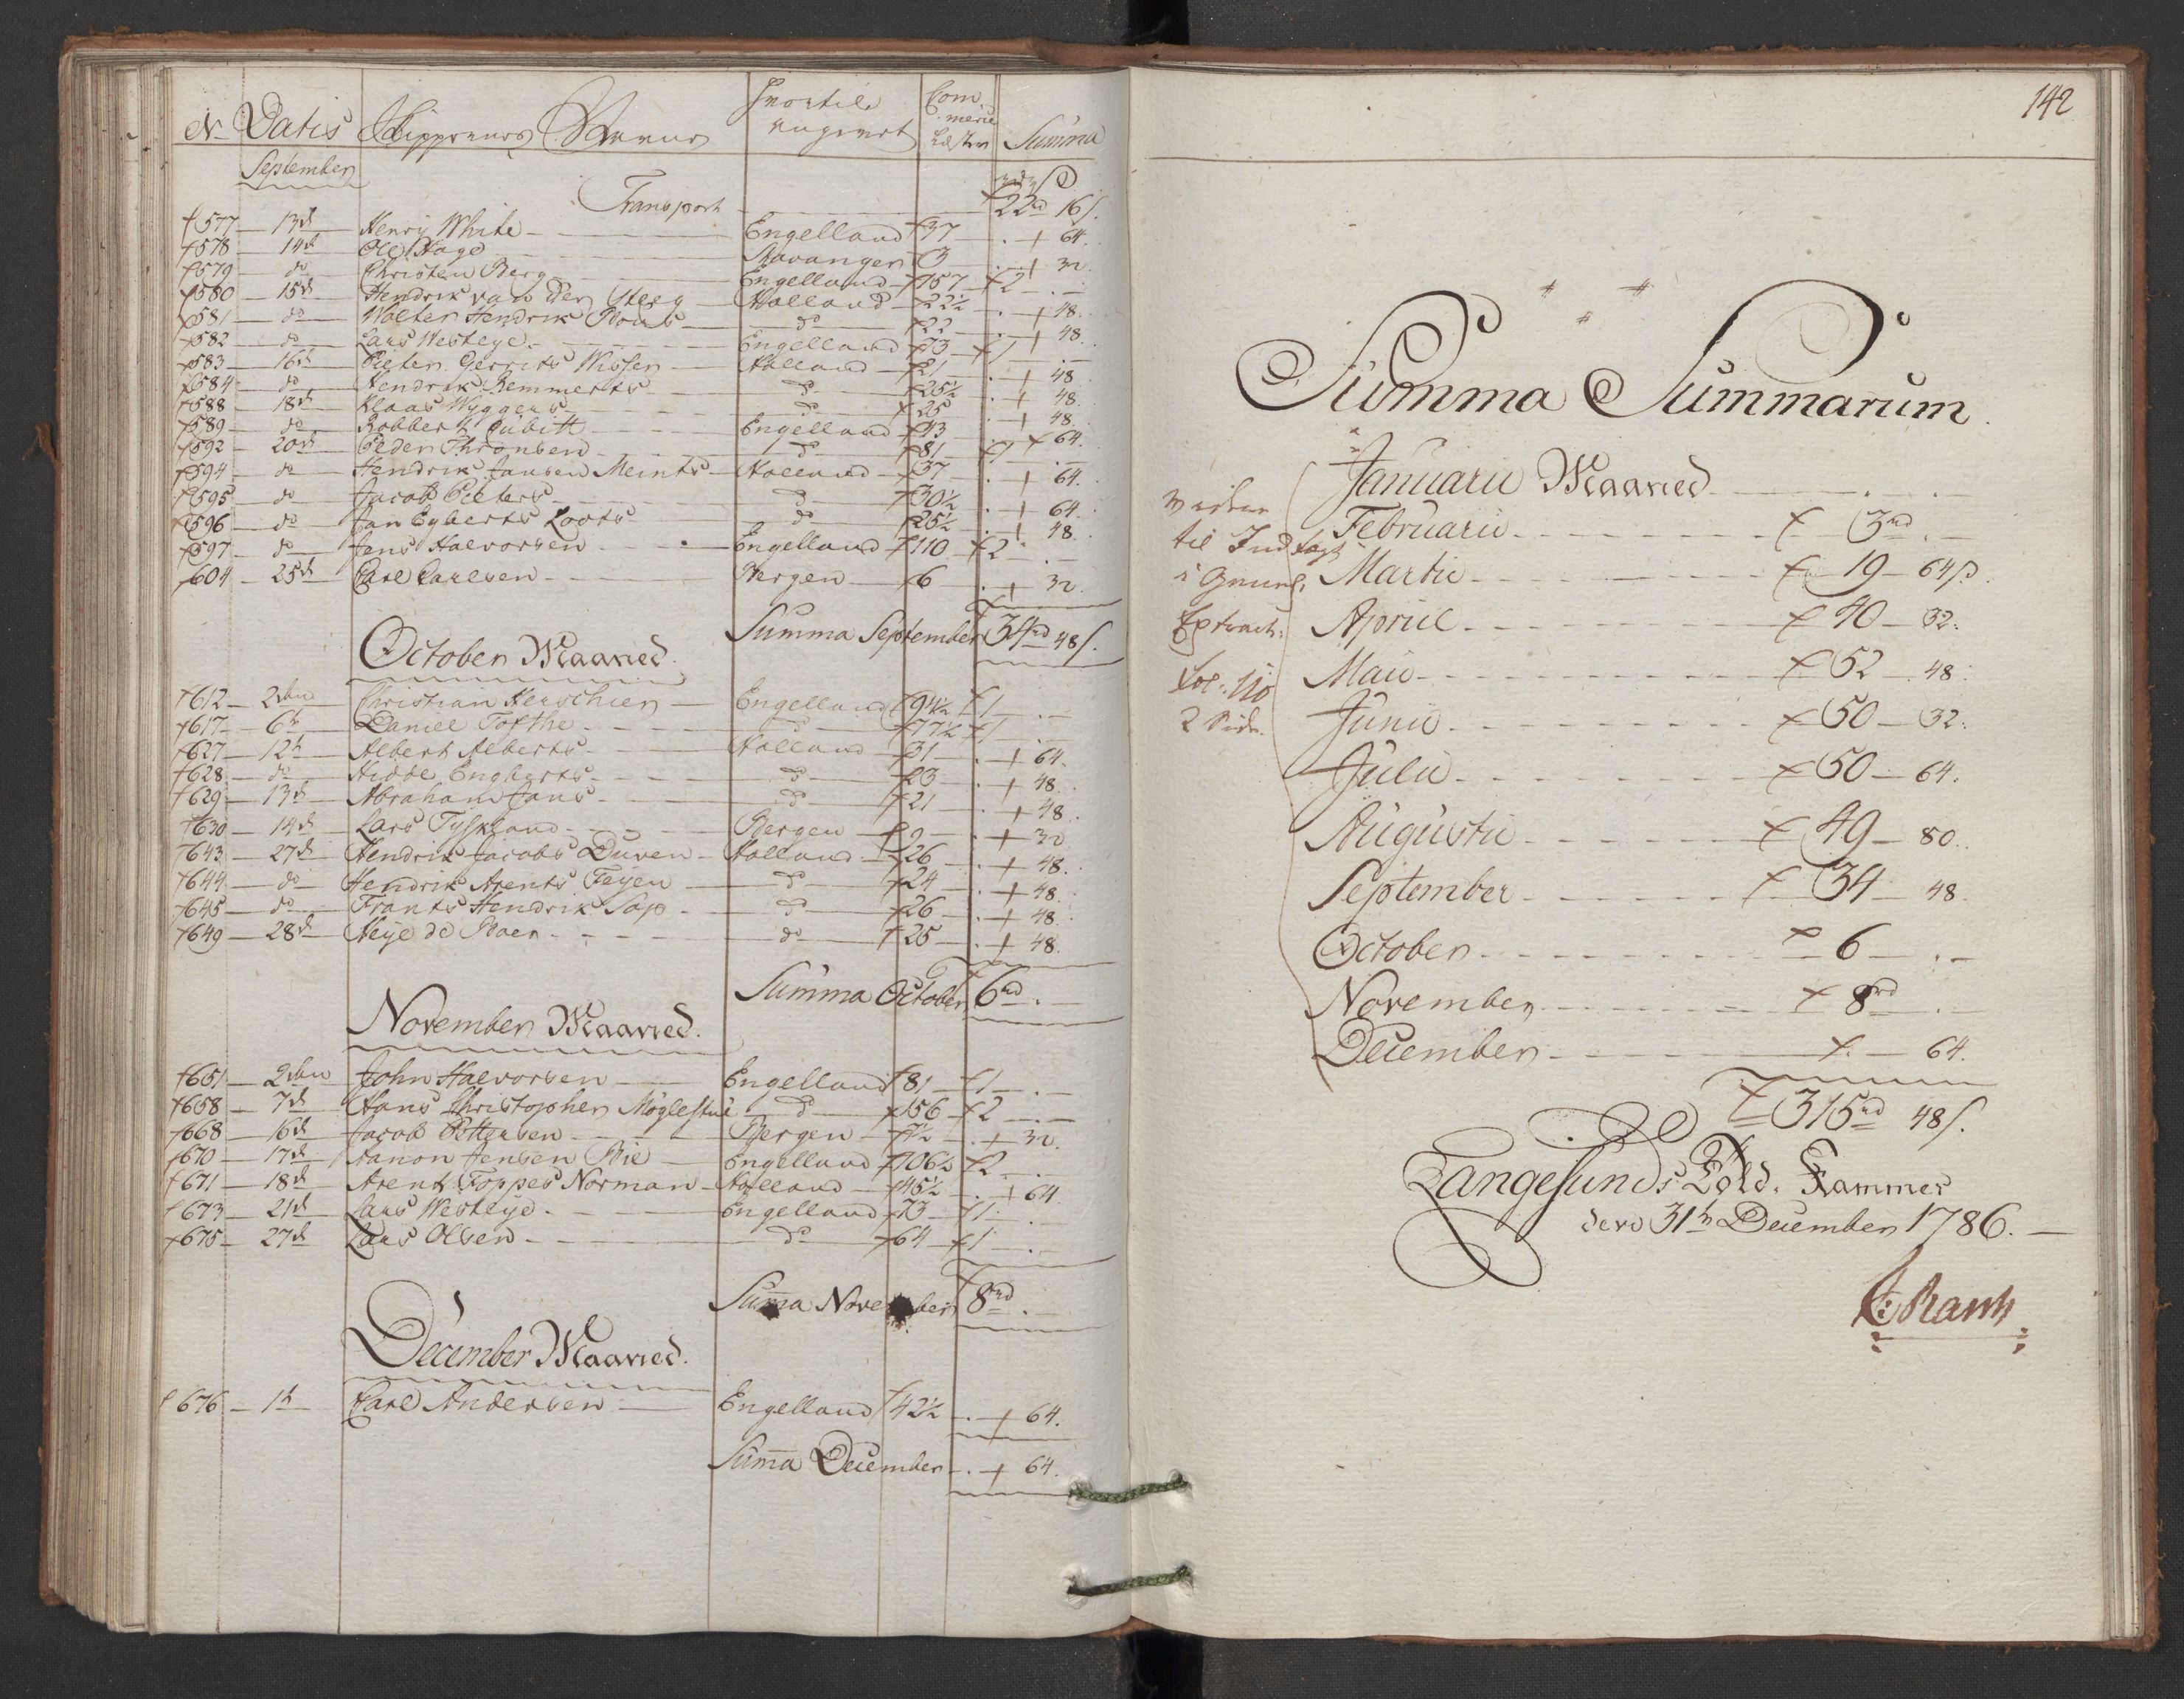 No Datis Skippernes Navne Hvortil angivet Com merce Læster Summa
September
Transport 22rd 16s.
577 13de Henry White Engelland 37 . 64.
578 14de Ole Hage Stavanger 3 . 32.
579 do Christen Berg Engelland 157 2 .
580 15de Hendrik van der Steeg Holland 22½ . 48.
581 do Wolter Hendrik do 22 . 48.
582 do Lars Westeye Engelland 73 1 .
583 16de Pieter Gerrits Visser Holland 21 . 48
584 do Hendrik Remmerts do 25½ . 48.
588 18de Klaas Wyggers do 25 . 48
589 do Robbert Cubitt Engelland 43 . 64.
592 20de Peder Thronsen do 81 1 .
594 do Hendrik Jansen Meints Holland 37 . 64.
595 do Jacob Pieters do 30½ . 64.
596 do Jan Egberts Loots do 25½ . 48.
597 do Jens Halvorsen Engelland 110 2 .
604 25de Carl Carlsen Bergen 6 . 32.
Summa September 34rd 48s.
October Maaned.
612 2den Christian Engelland 94½ 1 .
617 6te Daniel Tofthe do 77½ 1 .
627 12te Albert Alberts Holland 31 . 64.
628 do Hidde Engberts do 23 . 48.
629 13de Abraham Jans do 21 . 48.
630 14de Lars Tyskland Bergen 9 . 32
643 27de Hendrik Jacobs Duven Holland 26 . 48.
644 do Hendrik Arents Feyen do 24 . 48.
645 do Frants Hendrik Sap do 26 . 48.
649 28de Heye de Boer do 25 . 48.
Summa October 6rd .
November Maaned.
651 2den John Halvorsen Engelland 81 1 .
658 7de Hans Christopher Møglestue do 156 2 .
668 16de Jacob Pettersen Bergen 7½ . 32.
670 17de Aanon Jensen Bie Engelland 106½ 2 .
671 18de Arent Foppes Norman Holland 45½ . 64
673 21de Lars Westeye Engelland 73 1 .
675 27de Lars Olsen do 64 1 .
Summa November 8rd .
December Maaned.
676 1te Carl Andersen Engelland 42½ . 64.
Summa December . 64.
142
Summa Summarum
Januarii Maaned
Februarii 3rd
Martii 19 64s.
Aprill 40 32.
Maii 52 48.
Junii 50 32.
Julii 50 64.
Augusti 49 80.
September 34 48.
October 6 .
November 8rd .
December . 64.
til Indtægt
i
Extract
Fol: 110
2 Side.
315rd 48s.
Langesunds Told Kammer
den 31te December 1786.